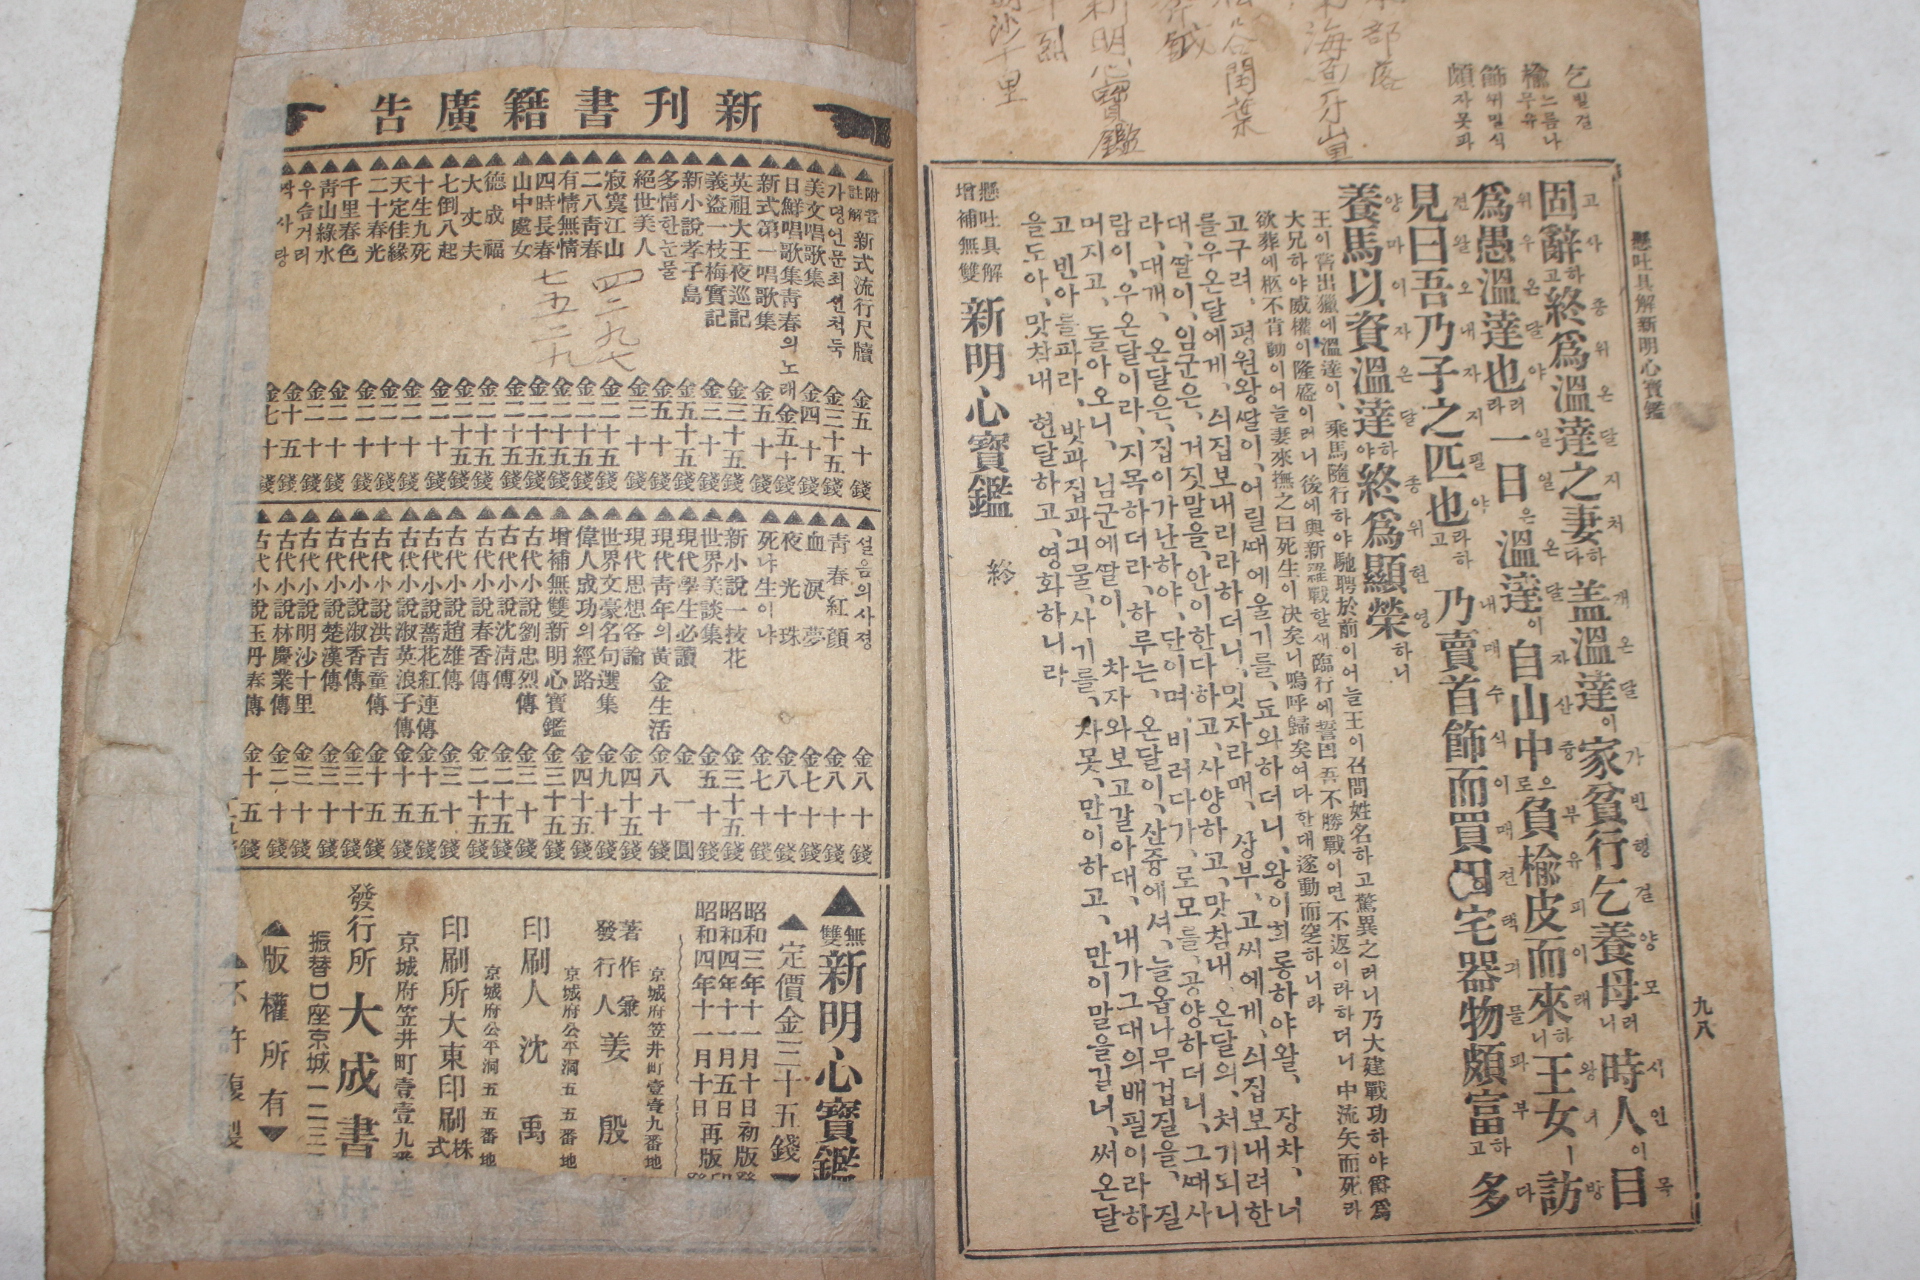 乞 빌걸
楡 느릅나무유
飾 꾸밀식
頗 자못파
懸吐具解新明心寶鑑
九八
固辭하고終爲溫達之妻하다盖溫達이家貧行乞養母러니時人이目
爲愚溫達也러라一日은溫達이自山中으로負楡皮而來하니王女ㅣ訪
見曰吾乃子之匹也라하고乃賣首飾而買田宅器物頗富하고多
養馬以資溫達하야終爲顯榮하니
王이嘗出獵에溫達이、乘馬隨行하야馳聘於前이어늘王이召問姓名하고驚異之러니乃大建戰功하야爵爲
大兄하야威權이隆盛이러니後에與新羅戰할새臨行에誓曰吾不勝戰이면不返이라하더니中流矢而死라
欲葬에柩不肯動이어늘妻來撫之曰死生이决矣니嗚呼歸矣여다한대遂動而窆하니라
고구려、평원왕딸이、어릴때에울기를、됴와하더니、왕이희롱하야왈、장차、너
를우온달에게、싀집보내리라하더니、밋자라매、상부、고씨에게、싀집보내려한
대、딸이、임군은、거짓말을、안이한다하고、사양하고、맛참내、온달의、처기되니
라、대개、온달은、집이가난하야、단이며、비러다가、로모를、공양하더니、그때사
람이、우온달이라、지목하더라、하루는、온달이、산중에셔、늘읍나무겁질을、질
머지고、돌아오니、님군에딸이、차자와보고갈아대、내가그대의배필이라하
고、빈아를파라、밧과집과긔물、사기를、자못、만이하고、만이말을길너、써온달
을도아、맛참내현달하고、영화하니라
懸吐具解
增補無雙 新明心寶鑑 終
新刊書籍廣告
▲附書註解 新式流行尺牘 金五十錢
▲가뎡언문최신척독 金三十五錢
▲美文唱歌集 金四十錢
▲日鮮唱歌集靑春의노래 金五十錢
▲新式第一唱歌集 金五十錢
▲英祖大王夜巡記 金三十五錢
▲義盜一枝梅實記 金三十錢
▲新小說孝子島 金五十五錢
▲多情한눈물 金五十錢
▲絕世美人 金三十錢
▲寂寞江山 金二十五錢
▲二八靑春 金二十五錢
▲有情無情 金二十錢
▲四時長春 金二十五錢
▲山中處女 金二十五錢
▲德成福 金二十錢
▲大丈夫 金二十五錢
▲七倒八起 金二十錢
▲十生九死 金二十錢
▲天定佳緣 金二十錢
▲二十春光 金二十錢
▲千里春色 金二十錢
▲靑山綠水 金二十錢
▲우슴거리 金十五錢
짝사랑 金七十錢
四二九七
七五二九
▲설음의사졍 金八十錢
▲靑春紅顔 金八十錢
▲血淚夢 金七十錢
▲夜光珠 金八十錢
▲死냐生이냐 金七十錢
▲新小說一技花 金三十五錢
▲世界美談集 金五十錢
▲現代學生必讀 金一圓
▲現代靑年의黃金生活 金八十錢
▲現代思想各論 金四十五錢
▲世界文豪名句選集 金九十錢
▲偉人成功의經路 金四十五錢
▲增補無雙新明心寶鑑 金三十五錢
▲古代小說劉忠烈傳 金三十錢
▲古代小說沈淸傳 金二十五錢
▲古代小說春香傳 金二十五錢
▲古代小說趙雄傳 金三十錢
▲古代小說薔花紅連傳 金十五錢
▲古代小說淑英浪子傳 金十五錢
▲古代小說洪吉童傳 金十五錢
▲古代小說淑香傳 金三十錢
▲古代小說楚漢傳 金三十錢
▲古代小說明沙十里 金三十錢
▲古代小說林慶業傳 金二十錢
古代小說玉丹春傳 金十五錢
▲無雙 新明心寶鑑
▲定價金三十五錢
昭和三年十一月十日初版
昭和四年十一月五日印
昭和四年十一月十日再版
京城府笠井町壹壹九番地
著作兼發行人 姜殷
京城府公平洞五五番地
印刷人 沈禹
京城府公平洞五五番地
印刷所 大東印刷株式
京城府笠井町壹壹九番
發行所 大成書
振替口座京城一二三
▲版權所有▼
不許複製
新明心寶鑑